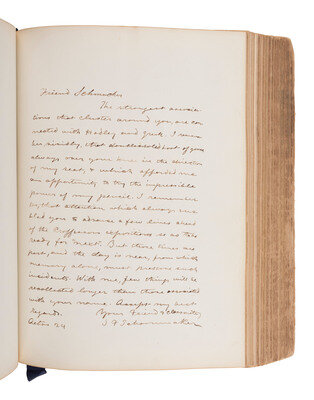 Friend Schumacher
The strongest associa-
tions that cluster around you, are con
nected with Hadley and Greek. I remem
ber vividly, that
always over your
of my seat, & which afforded me
an opportunity to try the impressible
power of my pencil. I remember
that attention which always ena
bled you to advance a few lines ahead
of the Proffessors expositions so as to be
ready for "next". But those times are
past, and the day is near, from which
memory alone, must preserve such
incidents. With me, few things will be
recollected longer than those associated
with your name. Accept my best
regards. Your Friend & Classmate,
J F Schoonmaker